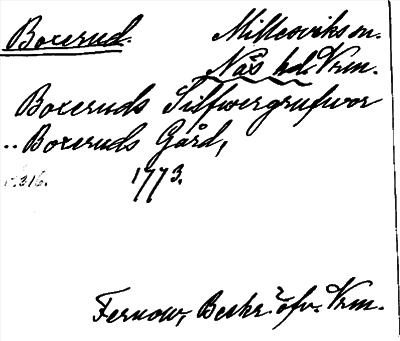 Boxerud. Millesviks sn.
Näs hd. Vrm.
Boxeruds Silfwergrufwor
.. Boxeruds Gård,
s. 216. 1773.
Fernow, Beskr. öfv. Vrm.